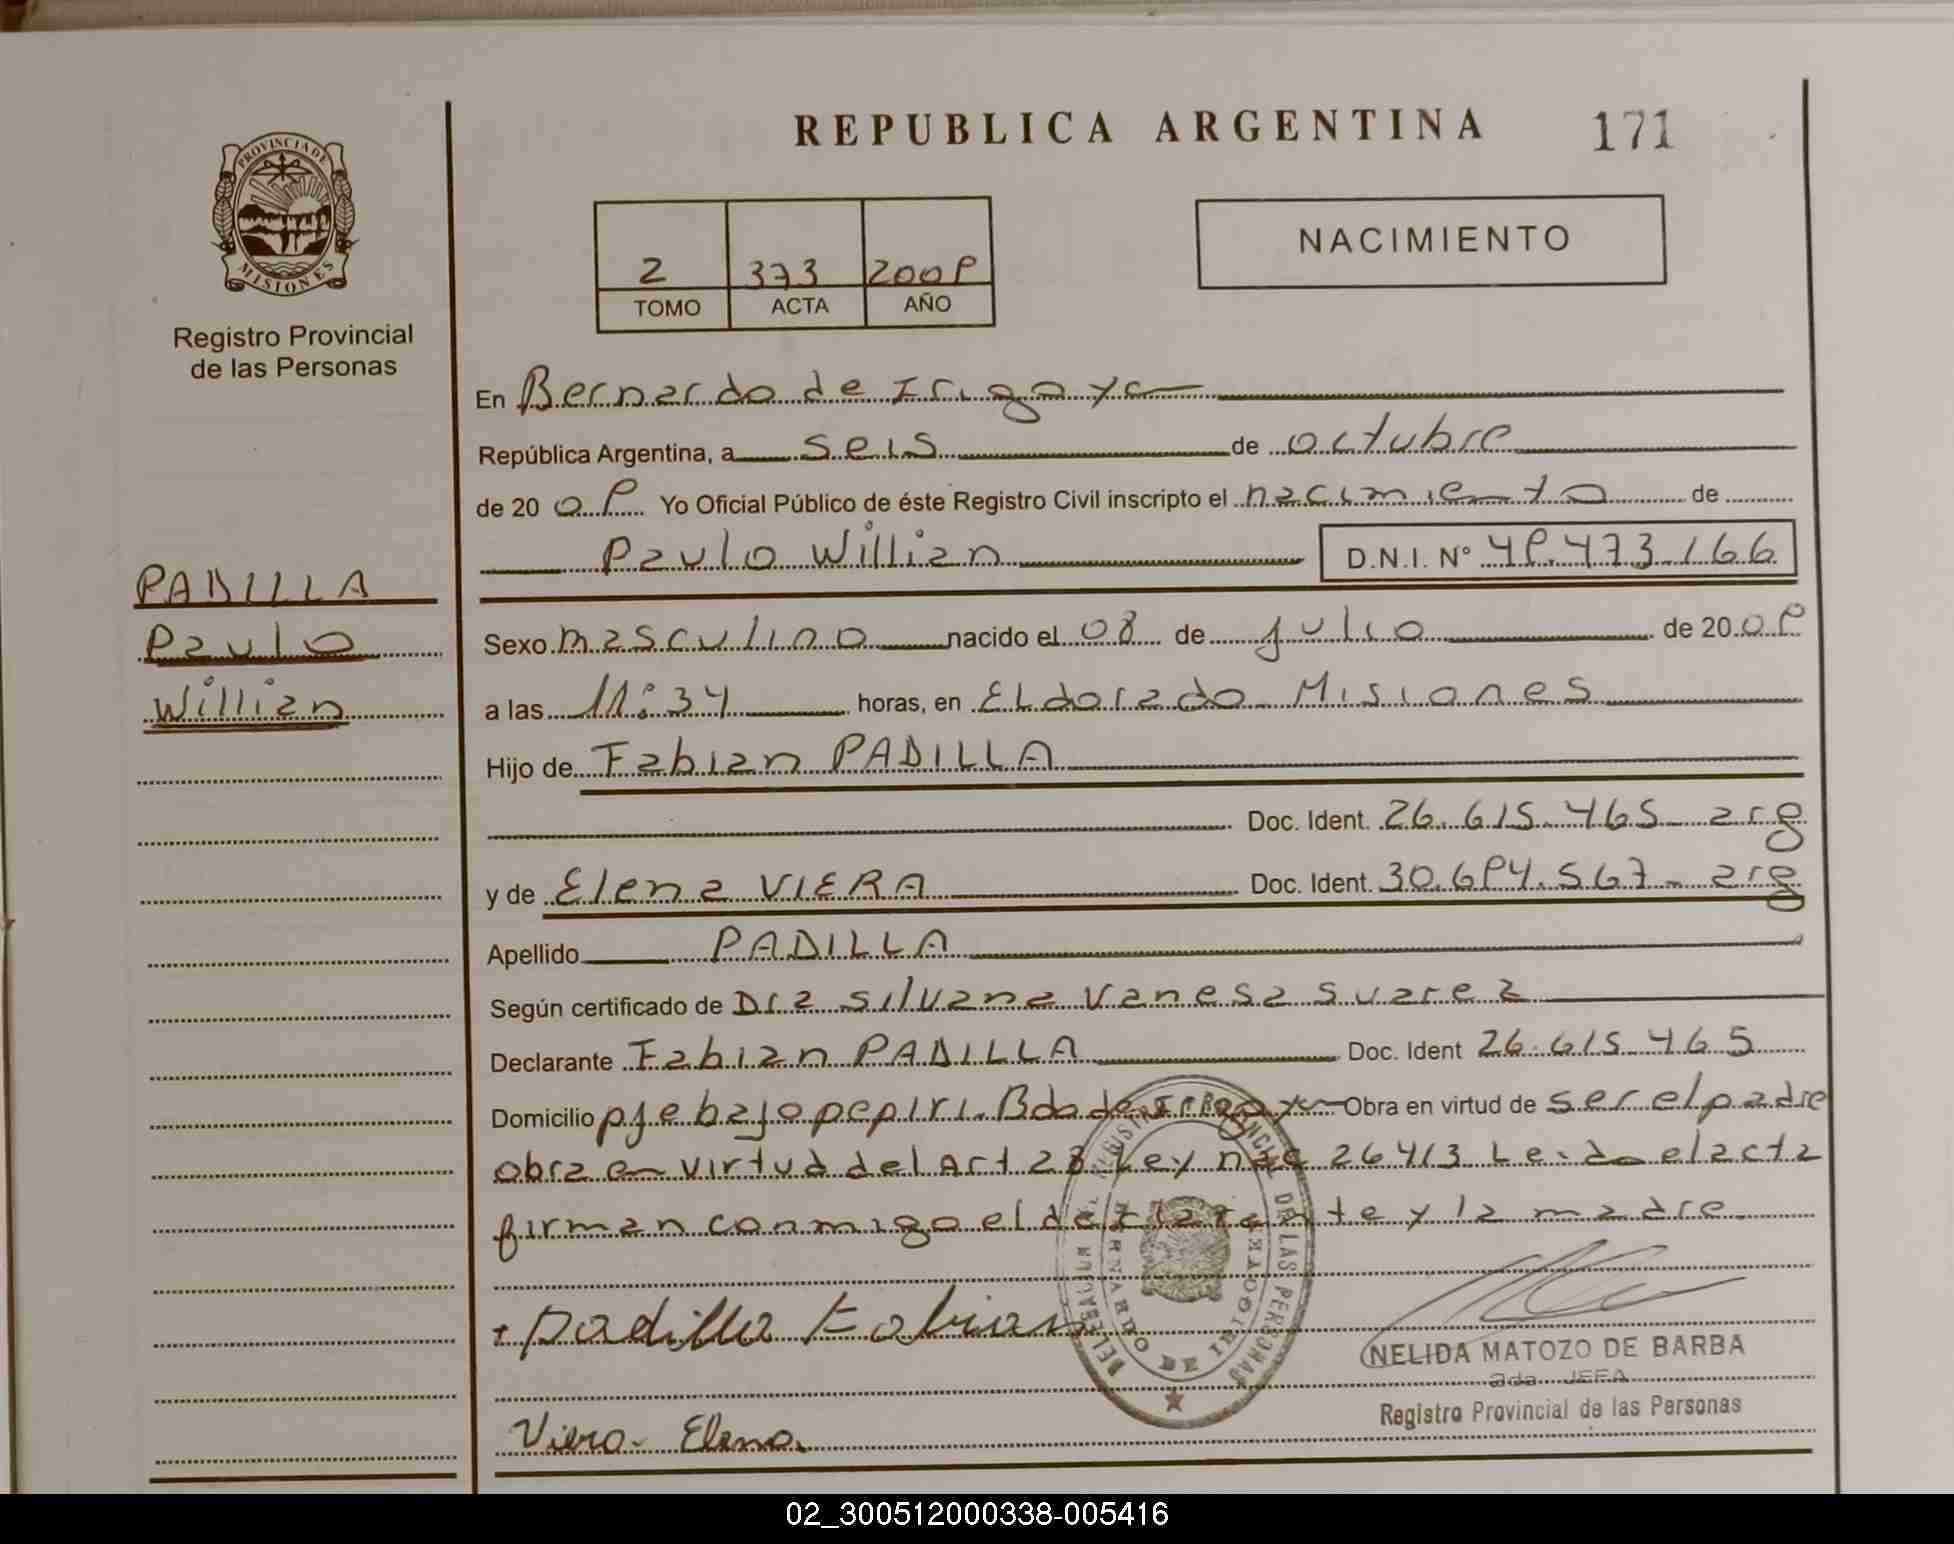 REPUBLICA ARGENTINA
171
PROVINCIA DE
MISIONES
Registro Provincial
de las Personas
2 373 2009
TOMO ACTA AÑO
NACIMIENTO
En Bernardo de Irigoyen
República Argentina, a seis de octubre
de 2009 Yo Oficial Público de éste Registro Civil inscripto el nacimiento de
Paulo Willian D.N.I. Nº 49.473.166
PADILLA
Paulo
Willian
Sexo masculino nacido el 08 de julio de 2009
a las 11:34 horas, en Eldorado Misiones
Hijo de Fabian PADILLA
Doc. Ident. 26.615.465 arg
y de Elena VIERA Doc. Ident. 30.694.567 arg
Apellido PADILLA
Según certificado de Dra Silvana Vanesa Suarez
Declarante Fabian PADILLA Doc. Ident 26.615.465
Domicilio pje bajo pepiri. Bdo de Irigoyen Obra en virtud de ser el padre
obra en virtud del Art 28 Ley 26413 Leido el acta
firman conmigo el declarante y la madre
Padilla Fabian
Viera Elena
DELEGACION
BERNARDO DE IRIGOYEN
DE LAS PERSONAS
NELIDA MATOZO DE BARBA
2da JEFA
Registro Provincial de las Personas
02_300512000338-005416